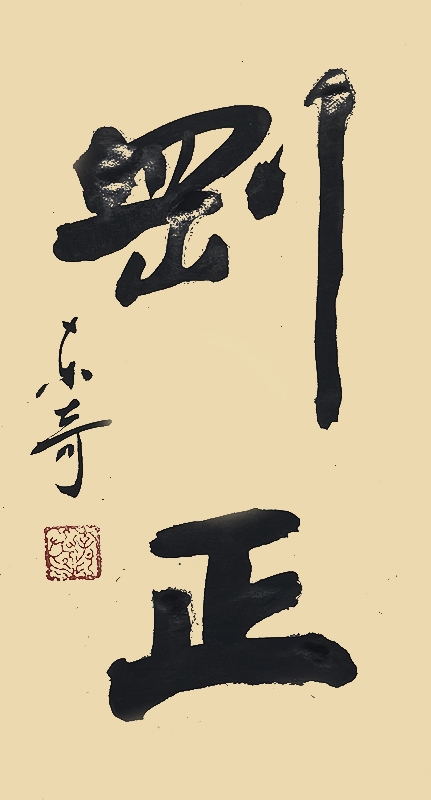 剛正
东奇